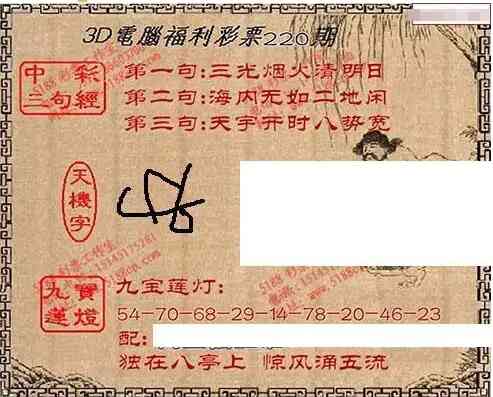 3D電腦福利彩票220期
中彩
三句經
第一句:三光烟火清明日
第二句:海内无如二地闲
第三句:天宇井时八势宽
天機字
九寶
蓮燈
九宝莲灯:
54-70-68-29-14-78-20-46-23
配:
独在八亭上 惊风涌五流